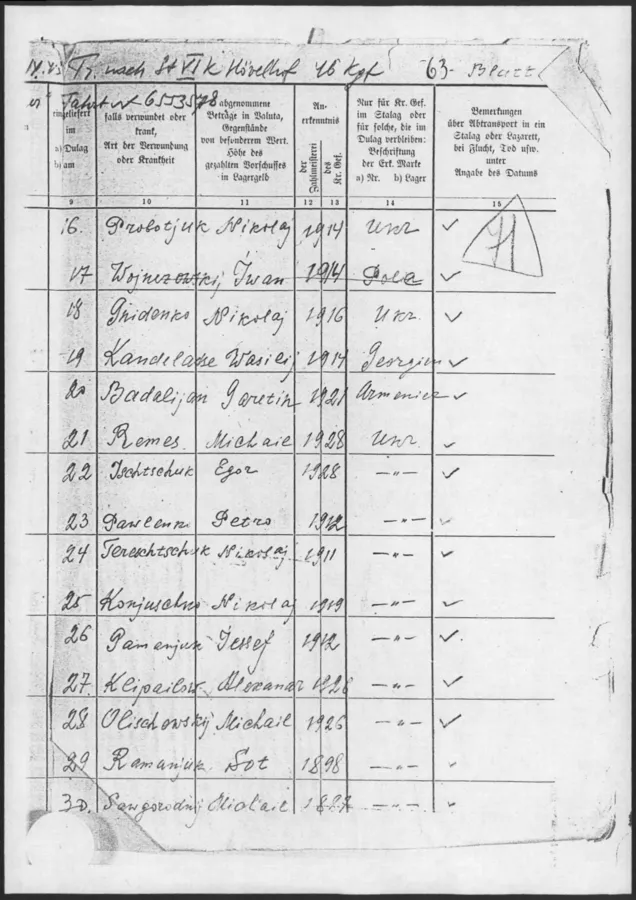 Tr. nach St VI K Hövelhof 46 Kgf 63. Blatt
Fahrt Nr 6553578
eingeliefert
im
a) Dulag
b) am
falls verwundet oder
krank,
Art der Verwundung
oder Krankheit
abgenommene
Beträge in Valuta,
Gegenstände
von besonderem Wert.
Höhe des
gezahlten Vorschusses
in Lagergeld
An-
erkenntnis
der Zahlmeisterei
des Kr. Gef.
Nur für Kr. Gef.
im Stalag oder
für solche, die im
Dulag verbleiben:
Beschriftung
der Erk. Marke
a) Nr. b) Lager
Bemerkungen
über Abtransport in ein
Stalag oder Lazarett,
bei Flucht, Tod usw.
unter
Angabe des Datums
9 10 11 12 13 14 15
16. Probotjuk Nikolaj 1914 Ukr ✓
71
17 Wojnezowskij Iwan 1914 Pole ✓
18 Gnidenko Nikolaj 1916 Ukr ✓
19 Kandelasse Wasilij 1914 Georgien ✓
20 Badalijan Garetin 1921 Armenier ✓
21 Remes Michail 1928 Ukr. ✓
22 Ischtschuk Egor 1928 —"— ✓
23 Pawlenko Petro 1912 —"— ✓
24 Tereschtschuk Nikolaj 1911 —"— ✓
25 Konjuschno Nikolaj 1919 —"— ✓
26 Pamanjuk Iessef 1912 —"— ✓
27. Klipailow Alexandr 1926 —"— ✓
28 Olischowskij Michail 1926 —"— ✓
29 Ramanjuk Sot 1898 —"— ✓
30. Sawgorodnij Michail 1887 —"— ✓